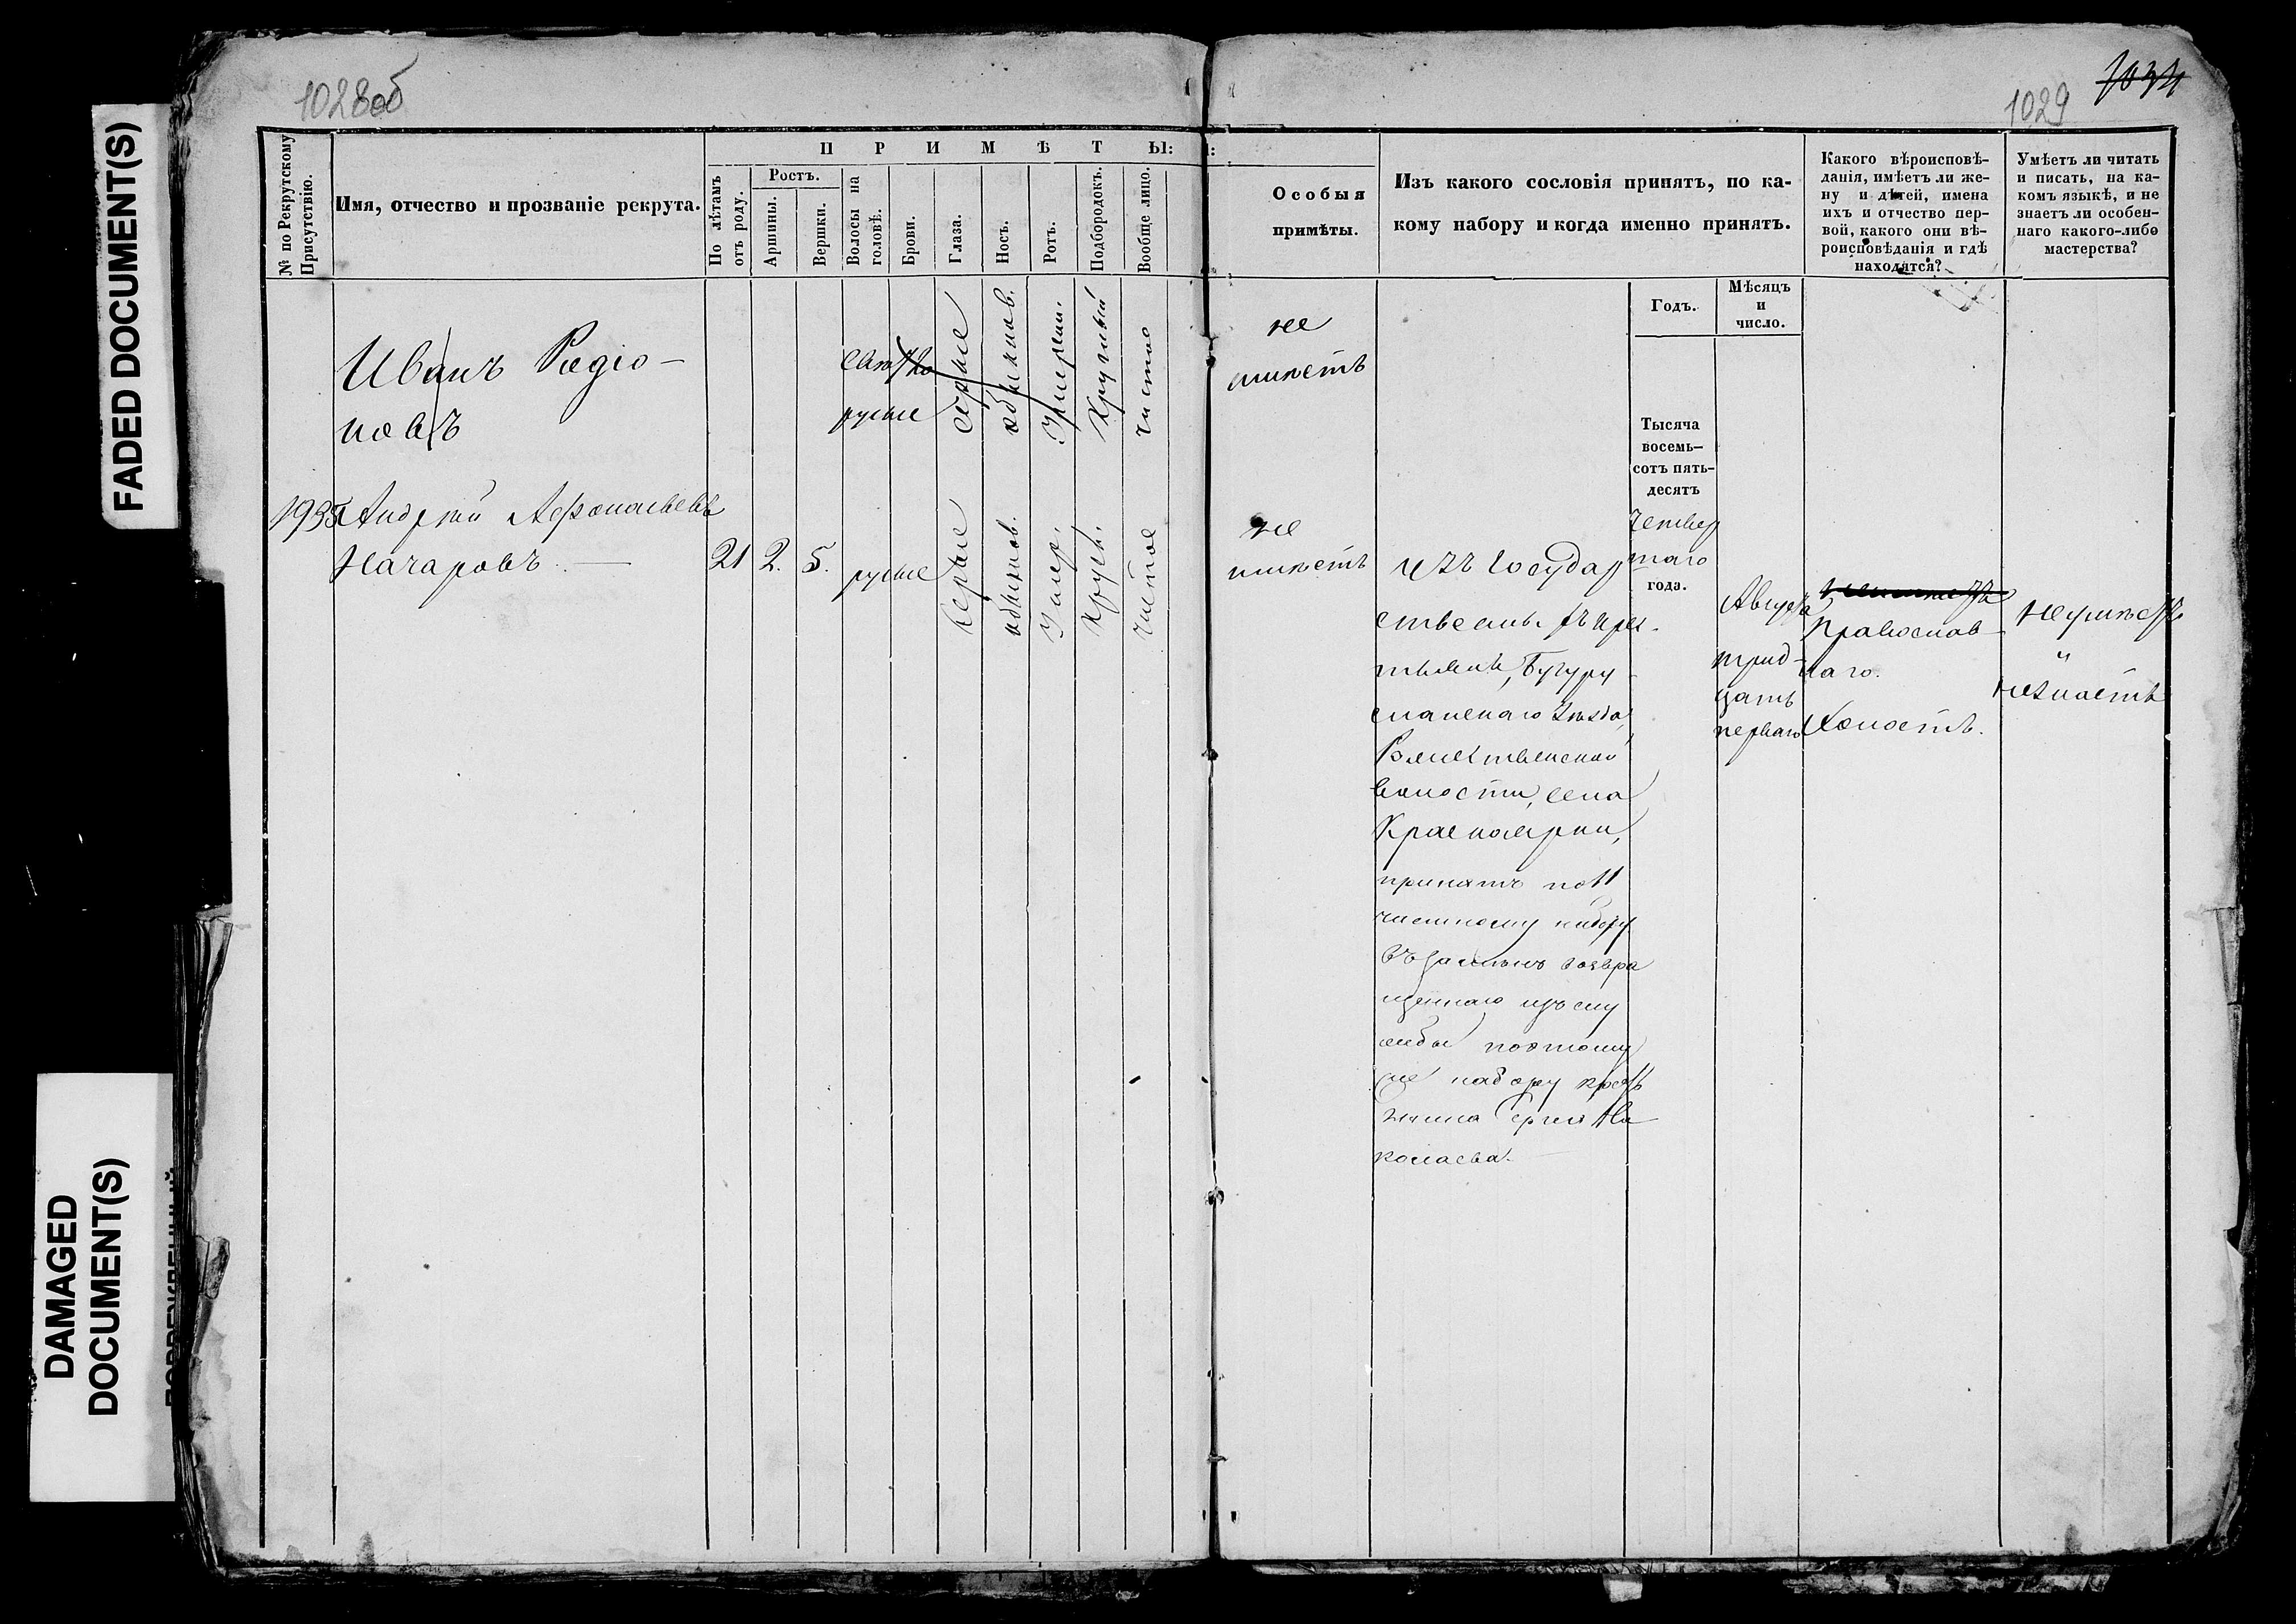 FADED DOCUMENT(S)
DAMAGED
DOCUMENT(S)
1028об
1029
1034
№ по Рекрутскому
Присутствію.
Имя, отчество и прозваніе рекрута.
ПРИМѢТЫ:
По лѣтамъ
отъ роду.
Ростъ.
Аршины.
Вершки.
Волосы на
головѣ.
Брови.
Глаза.
Носъ.
Ротъ.
Подбородокъ.
Вообще лицо.
Особыя
примѣты.
Изъ какого сословія принятъ, по ка-
кому набору и когда именно принятъ.
Годъ.
Мѣсяцъ
и
число.
Какого вѣроисповѣ-
данія, имѣетъ ли же-
ну и дѣтей, имена
ихъ и отчество пер-
вой, какого они вѣ-
роисповѣданія и гдѣ
находятся?
Умѣетъ ли читать
и писать, на ка-
комъ языкѣ, и не
знаетъ ли особен-
наго какого-либо
мастерства?
Иванъ Радіо-
новъ
свѣтло
русые
сѣрые
обыкнов.
умѣрен.
Круглый
чистое
не
имѣетъ
1935
Андрей Афонасьевъ
Начаровъ.
21
2.
5.
русые
сѣрые
обыкнов.
Умѣр.
Кругл.
чистое
не
имѣетъ
изъ Государ
ственныхъ крес-
тьянъ, Бугуру
сланскаго Уѣзда,
волости, села
Красноярки,
принятъ по 11
частному набору
въ замѣнъ возвра
щеннаго изъ слу
жбы по этому
же набору крестьянина
Сергея
Тысяча
восемь-
сотъ пять-
десятъ
четвер
таго
года.
Августа
трид-
цать
перваго
Православ-
наго.
Холостъ.
неумѣетъ
и
незнаетъ